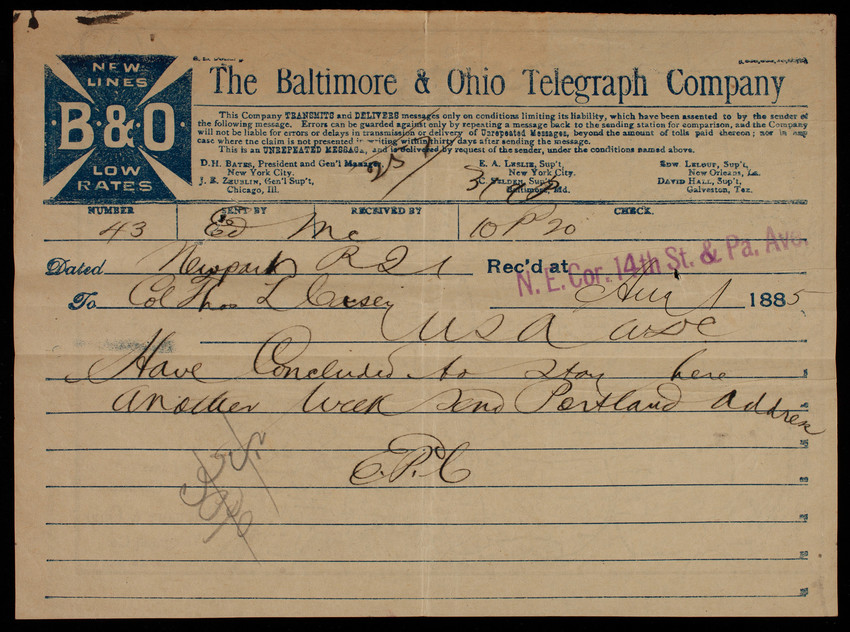 NEW
LINES
B.&O.
LOW
RATES
The Baltimore & Ohio Telegraph Company
This Company TRANSMITS and DELIVERS messages only on conditions limiting its liability, which have been assented to by the sender of
the following message. Errors can be guarded against only by repeating a message back to the sending station for comparison, and the Company
will not be liable for errors or delays in transmission or delivery of Unrepeated Messages, beyond the amount of tolls paid thereon; nor in any
case where the claim is not presented in writing within thirty days after sending the message.
This is an UNREPEATED MESSAGE, and is delivered by request of the sender, under the conditions named above.
D.H. BATES, President and Gen'l Manager, E. A. LESLIE, Sup't, EDW. LELOUP, Sup't,
New York City. New York City. New Orleans, La.
J. E. ZEUBLIN, Gen'l Sup't, C. SELDEN, Sup't, DAVID HALL, Sup't,
Chicago, Ill. Baltimore, Md. Galveston, Tex.
NUMBER SENT BY RECEIVED BY CHECK.
43 Ed Mc 10 Pd 20
Dated Newport R I Rec'd at N. E. Cor. 14th St. & Pa. Ave.
Aug 1 1885
To Col Thos L Casey
U S A
Have Concluded to stay here
another week send Portland address
E.P.C